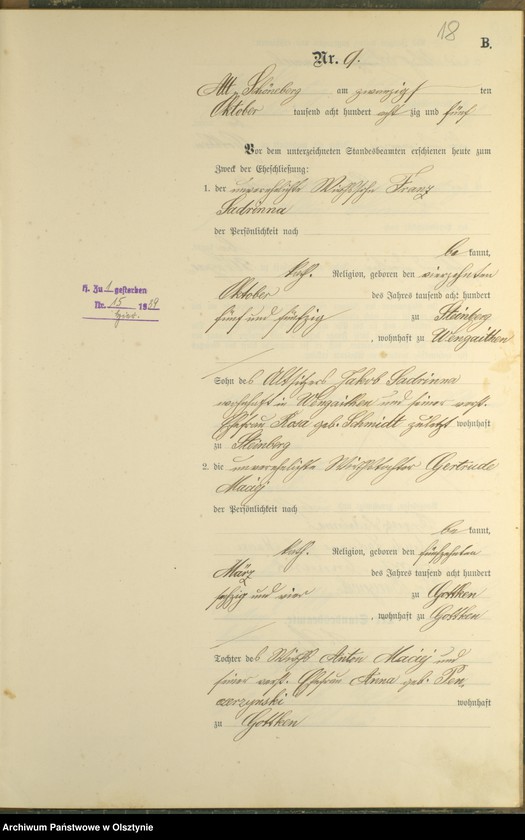 18
B.
Nr. 9.
Alt Schöneberg am zwanzigsten
Oktober tausend acht hundert achtzig und fünf
Vor dem unterzeichneten Standesbeamten erschienen heute zum
Zweck der Eheschließung:
1. der unverehelichte Wirthssohn Franz
Sadrinna
der Persönlichkeit nach
bekannt,
kath. Religion, geboren den vierzehnten
Oktober des Jahres tausend acht hundert
fünf und fünfzig zu Steinberg
, wohnhaft zu Wengaithen
H. Zu 1 gestorben
Nr. 15 19
Sohn des Altsitzers Jakob Sadrinna
wohnhaft in Wengaithen und seiner verst.
Ehefrau Rosa geb. Schmidt zuletzt wohnhaft
zu Steinberg
2. die unverehelichte Wirthstochter Gertrude
Maciej
der Persönlichkeit nach
bekannt,
kath. Religion, geboren den fünfzehnten
März des Jahres tausend acht hundert
sechzig und vier zu Gottken
, wohnhaft zu Gottken
Tochter des Wirths Anton Maciej und
seiner verst. Ehefrau Anna geb.
wohnhaft
zu Gottken
Archiwum Państwowe w Olsztynie